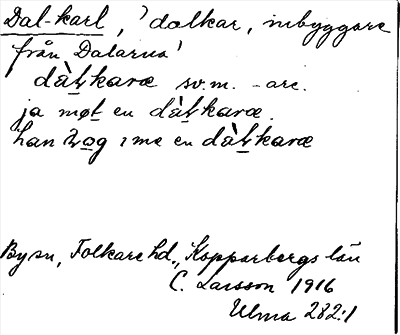 Dal-karl, 'dalkar, inbyggare
från Dalarna'
dàt̠karæ sv.m. -are.
ja møt en dàt̠karæ.
han me en dàt̠karæ
By sn, Folkare hd., Kopparbergs län
C. Larsson 1916
Ulma 282:1